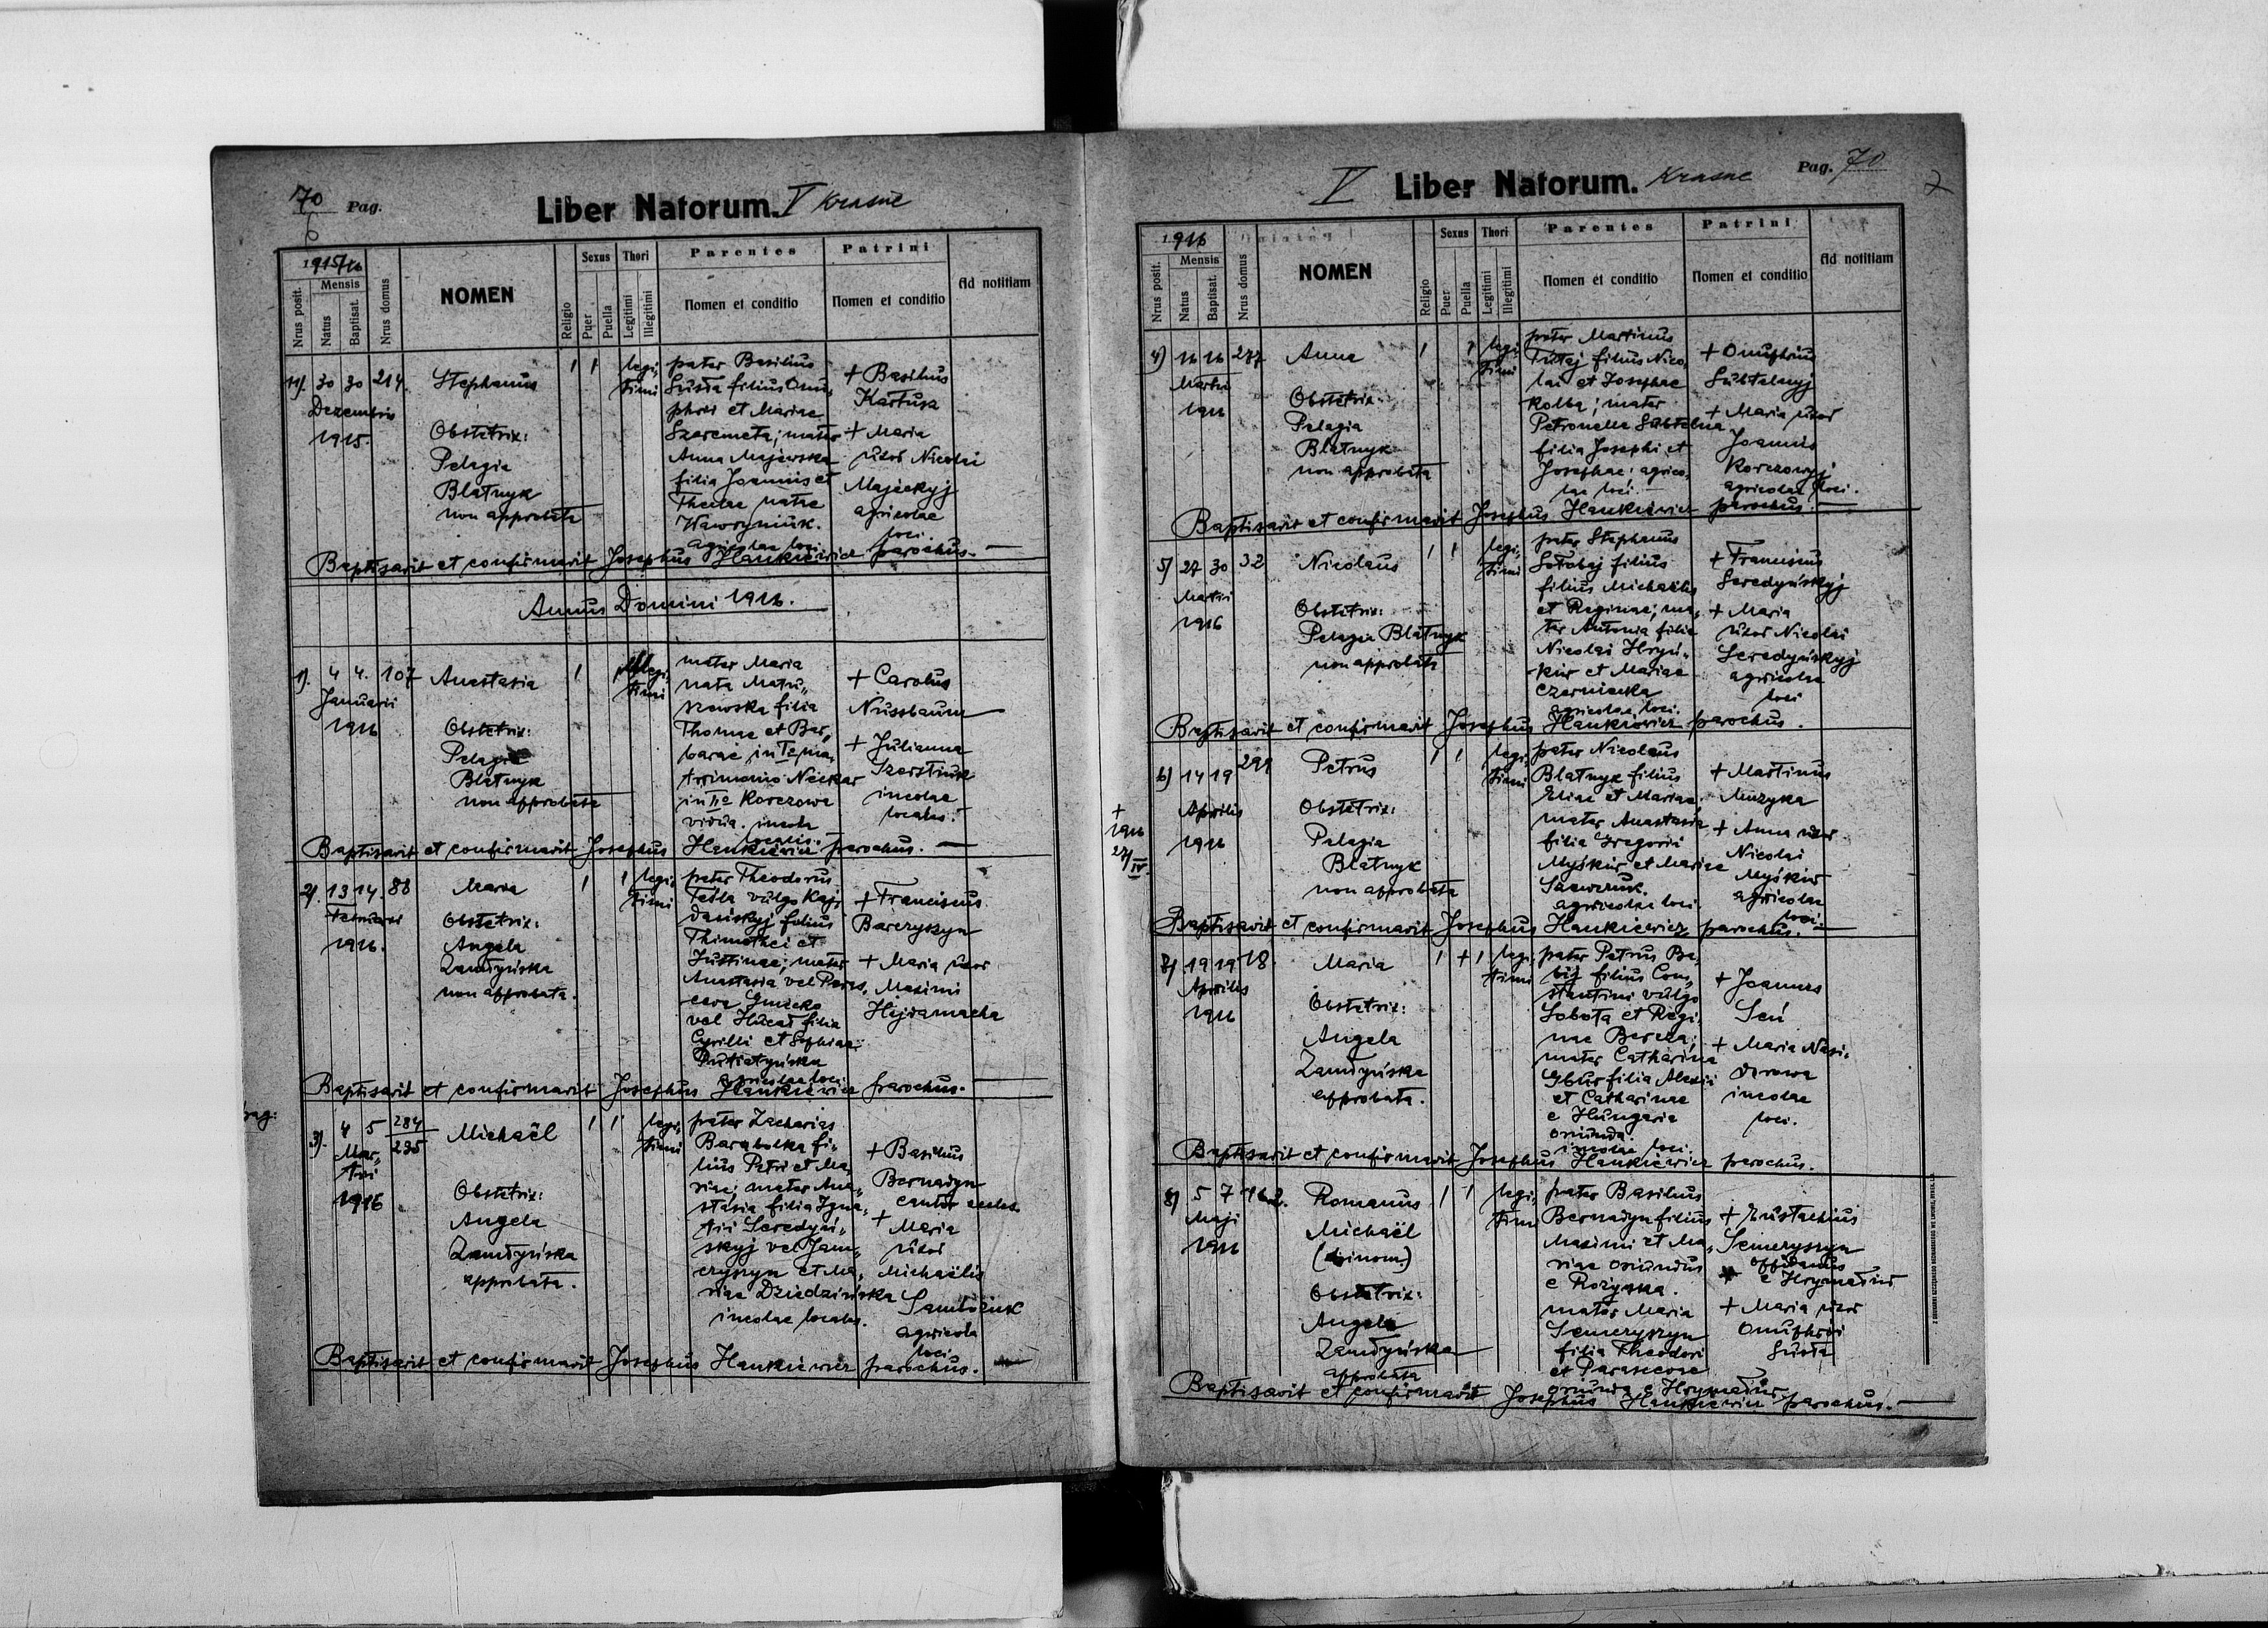 70 Pag.
6
Liber Natorum. V Krasne
1915/16
Nrus posit.
Mensis
Natus
Baptisat.
Nrus domus
NOMEN
Religio
Sexus
Puer
Puella
Thori
Legitimi
Illegitimi
Parentes
Nomen et conditio
Patrini
Nomen et conditio
Ad notitiam
11). 30 30 214.
Dezembris
1915.
Stephanus
Obstetrix:
Pelagia
Blatnyk
non approbata
1 1 legi-
timi
pater Basilius
Susła filius Onu-
phrii et Mariae
Szeremeta; mater
Anna Majewska
filia Joannis et
Theclae natae
Wawryniuk.
agricolae loci.
+ Basilius
Kartusz
+ Maria
uxor Nicolai
Majeckyj
agricolae
loci.
Baptisavit et confirmavit Josephus Hankiewicz parochus.
Annus Domini 1916.
1). 4 4. 107
Januarii
1916
Anastasia
Obstetrix:
Pelagia
Blatnyk
non approbata
mater Maria
nata Matu-
szowska filia
Thomae et Bar-
barae in I ma-
trimonio Neckar
in II Korczowa
vidua. incola
localis.
+ Carolus
Nussbaum
+ Julianna
incolae
locales.
Baptisavit et confirmavit Josephus Hankiewicz parochus.
2). 13 14. 88
Februarii
1916.
Maria
Obstetrix:
Angela
Zamdyńska
non approbata.
1 1 legi-
timi
pater Theodorus
Tesla vulgo Kaj-
dańskyj filius
Thimothei et
Justinae; mater
Anastasia vel Paras-
ceva
vel filia
Cyrilli et Sophiae
agricolae loci.
+ Franciscus
Barczyszyn
+ Maria uxor
Maximi
Hajdamacha
Baptisavit et confirmavit Josephus Hankiewicz parochus.
3). 4 5 284
235
Mar-
tii
1916
Michaël
Obstetrix:
Angela
Zamdyńska
approbata.
1 1 legi-
timi
pater Zacharias
Barabolka fi-
lius Petri et Ma-
riae; mater Ana-
stasia filia Igna-
tii Seredyń-
skyj vel Jam-
czyszyn et Ma-
riae Dziedzińska
incolae locales.
+ Basilius
Bernadyn
cantor eccles.
+ Maria
uxor
Michaëlis
agricola
loci.
Baptisavit et confirmavit Josephus Hankiewicz parochus.
V Liber Natorum. Krasne
Pag. 70
7
1916
Nrus posit.
Mensis
Natus
Baptisat.
Nrus domus
NOMEN
Religio
Sexus
Puer
Puella
Thori
Legitimi
Illegitimi
Parentes
Nomen et conditio
Patrini
Nomen et conditio
Ad notitiam
4) 16 16 277
Martii
1916
Anna
Obstetrix:
Pelagia
Blatnyk
non approbata
1 1 legi-
timi
pater Martinus
filius Nico-
lai et Josephae
Kolba; mater
Petronella Subtelna
filia Josephi et
Josephae; agrico-
lae loci.
+ Onuphrius
Subtelnyj
+ Maria uxor
Joannis
Korczowyj
agricolae loci.
Baptisavit et confirmavit Josephus Hankiewicz parochus.
5) 27 30 32
Martii
1916
Nicolaus
Obstetrix:
Pelagia Blatnyk
non approbata
1 1 legi-
timi
pater Stephanus
filius
filius Michaëlis
et Reginae; ma-
ter Antonia filia
Nicolai Hryń-
kiw et Mariae
Czerniecka
agricolae loci.
+ Franciscus
Seredyńskyj
+ Maria
uxor Nicolai
Seredyńskyj
agricolae
loci
Baptisavit et confirmavit Josephus Hankiewicz parochus.
6) 14 19 291
Aprilis
1916
+
1916
27/IV.
Petrus
Obstetrix:
Pelagia
Blatnyk
non approbata
1 1 legi-
timi
pater Nicolaus
Blatnyk filius
Eliae et Mariae;
mater Anastasia
filia Gregorii
Myśkiw et Mariae
agricolae loci.
+ Martinus
Muzyka
+ Anna uxor
Nicolai
Myśkiw
agricolae
loci.
Baptisavit et confirmavit Josephus Hankiewicz parochus.
7) 19 19 18.
Aprilis
1916
Maria
Obstetrix:
Angela
Zamdyńska
approbata.
1 + 1 legi-
timi
pater Petrus Ba-
bij filius Con-
stantini vulgo
Sobota et Regi-
nae Bereza;
mater Catharina
Gbur filia Alexii
et Catharinae
e Hungaria
oriunda.
incolae loci.
+ Joannes
Seń
+ Maria Nesi-
dorowa
incolae
loci.
Baptisavit et confirmavit Josephus Hankiewicz parochus.
8) 5 7 162.
Maji
1916
Romanus
Michaël
(binom.)
Obstetrix:
Angela
Zamdyńska
approbata
1 1 legi-
timi
pater Basilius
Bernadyn filius
Maximi et Ma-
riae oriundus
e Rożyska.
mater Maria
Semeryszyn
filia Theodori
et Parascevae
oriunda e Hrymaliw
+ Eustachius
Semeryszyn
oppidanus
e Hrymaliw
+ Maria uxor
Onuphrii
Susła
Baptisavit et confirmavit Josephus Hankiewicz parochus.